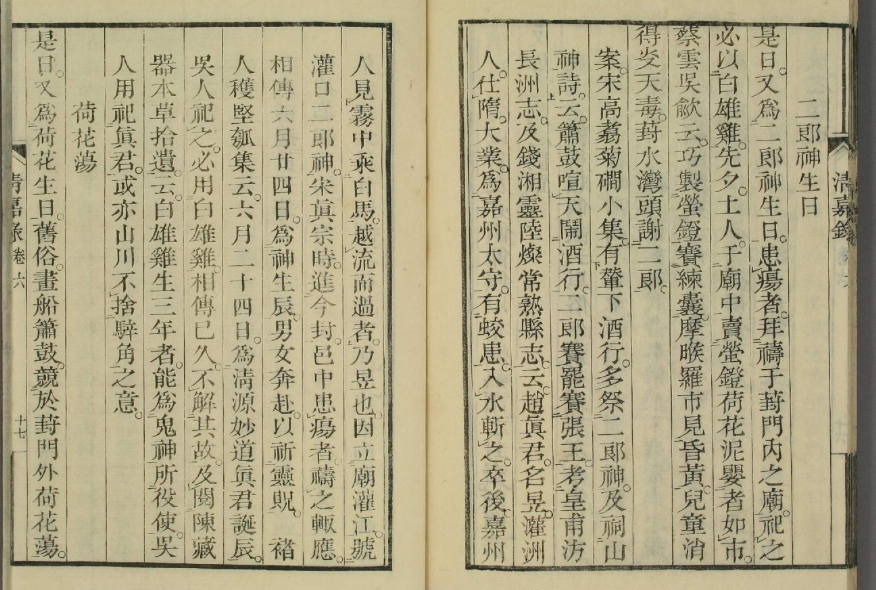 二郎神生日
是日又爲二郎神生日患瘍者拜禱于葑門內之廟祀之
必以白雄雞先夕土人于廟中賣螢鐙荷花泥嬰者如市
蔡雲吳歈云巧製螢鐙賽練囊摩睺羅市見昏黃兒童消
得炎天毒葑水灣頭謝二郎
案宋高翥菊磵小集有輦下酒行多祭二郎神及祠山
神詩云簫鼓喧天鬧酒行二郎賽罷賽張王考皇甫汸
長洲志及錢湘靈陸燦常熟縣志云趙眞君名昱灌洲
人仕隋大業爲嘉州太守有蛟患入水斬之卒後嘉州
清嘉錄
人見霧中乘白馬越流而過者乃昱也因立廟灌江號
灌口二郎神宋眞宗時進今封邑中患瘍者禱之輒應
相傳六月廿四日爲神生辰男女奔赴以祈靈貺 褚
人穫堅瓠集云六月二十四日爲清源妙道眞君誕辰
吳人祀之必用白雄雞相傳已久不解其故及閱陳藏
器本草拾遺云白雄雞生三年者能爲鬼神所役使吳
人用祀眞君或亦山川不捨騂角之意
荷花蕩
是日又爲荷花生日舊俗畫船簫鼓競於葑門外荷花蕩
清嘉錄 卷六 十七